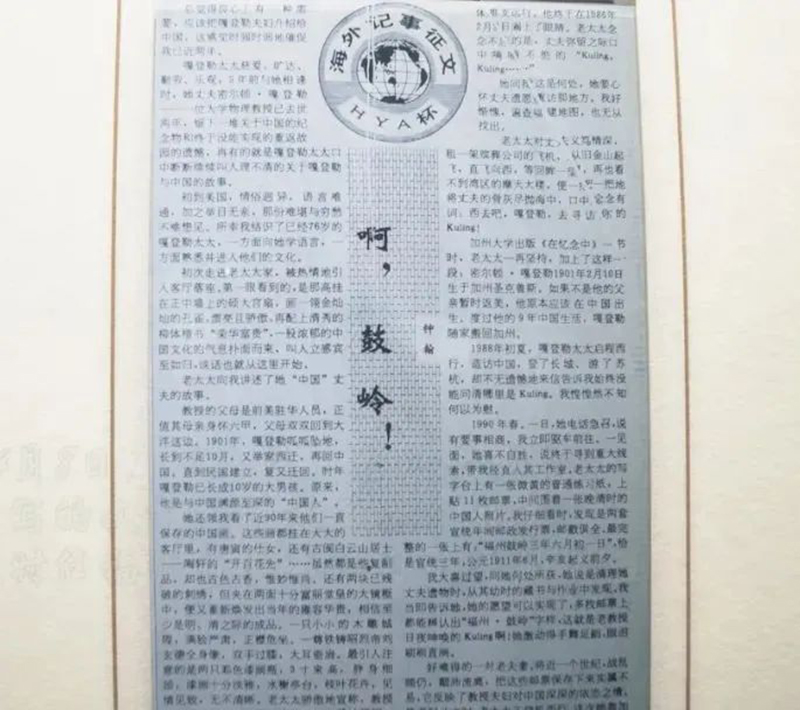 海外记事征文
HYA杯
啊，鼓岭！
钟翰
总觉得良心上有一种需
要，应该把嘎登勒夫妇介绍给
中国，这感觉时强时弱地催促
我已近两年。
嘎登勒太太慈爱、旷达、
勤劳、乐观，5年前与她相逢
时，她丈夫密尔顿·嘎登勒——
一位大学物理教授已去世
两年，留下一堆关于中国的纪
念物和终于没能实现的重返故
园的遗憾，再有的就是嘎登勒太太口
中断断续续叫人理不清的关于嘎登勒
与中国的故事。
初到美国，情俗迥异，语言难
通，加之举目无亲，那份难堪与穷愁
不难想见。所幸我结识了已经76岁的
嘎登勒太太，一方面向她学语言，一
方面熟悉并进入他们的文化。
初次走进老太太家，被热情地引
入客厅落座。第一眼看到的，是那高挂
在正中墙上的硕大宫扇，画一领金灿
灿的孔雀，漂亮且骄傲，再配上清秀的
柳体楷书“荣华富贵”，一股浓郁的中
国文化的气息扑面而来，叫人立感宾
至如归，谈话也就从这里开始。
老太太向我讲述了她“中国”丈
夫的故事。
教授的父母是前美驻华人员，正
值其母亲身怀六甲，父母双双回到大
洋这边。1901年，嘎登勒呱呱坠地，
长到不足10月，又举家西迁，再回中
国，直到民国建立，复又迁回。时年
嘎登勒已长成10岁的大男孩。原来，
他是与中国渊源至深的“中国人”。
她还领我看了近90年来他们一直
保存的中国画。这些画都挂在大大的
客厅里，有唐寅的仕女，还有古闽白云山居士
——陶轩的“开百花先”……虽然都是些复制
品，却也古色古香，惟妙惟肖。还有两块已残
破的刺绣，但夹在两面十分富丽堂皇的大镜框
中，便又重新焕发出当年的雍容华贵，相信至
少是明、清之际的成品。一只小小的木雕城
隍，满脸严肃，正襟危坐。一尊铁铸昭烈帝刘
玄德全身像，双手过膝，大耳垂肩。最引人注
意的是两只彩色漆画瓶，3寸来高，胖身细
颈，漆画十分淡雅，水榭亭台，枝叶花卉，见
情见致，无不清晰。老太太骄傲地宣称，教授
体 支运行。他终于在1986年
2月 日阖上了眼睛。老太太念
念不 的是，丈夫弥留之际口
中 不惫的“Kuling，
Kuling……”
她问我这是何处，她要心
怀丈夫遗愿 访那地方。我好
惭愧，遍查福建地图，也无从
找出。
老太太对丈夫义笃情深，
租一架殡葬公司的飞机，从旧金山起
飞，直飞向西，等回眸一望，再也看
不到湾区的摩天大楼，便一把一把地
将丈夫的骨灰尽抛海中，口中 念念有
词：西去吧，嘎登勒，去寻访你的
Kuling！
加州大学出版《在忆念中》一书
时，老太太一再坚持，加上了这样一
段，密尔顿·嘎登勒1901年2月10日
生于加州圣克鲁斯。如果不是他的父
亲暂时返美，他原本应该在中国出
生。度过他的9年中国生活，嘎登勒
随家搬回加州。
1988年初夏，嘎登勒太太启程西
行，造访中国，登了长城、游了苏
杭，却不无遗憾地来信告诉我始终没
能问清哪里是Kuling。我惶惶然不知
何以为慰。
1990年春，一日，她电话急召，说
有要事相商，我立即驱车前往。一见
面，她喜不自胜，说终于寻到重大线
索，带我径直入其工作室，老太太的写
字台上有一张微黄的普通练习纸，上
贴11枚邮票，中间围着一张晚清时的
中国人照片。我仔细看时，发现是两套
宣统年间邮政发行票，邮戳俱全，最完
整的一张上有：“福州鼓岭三年六月初一日”，恰
是宣统三年，公元1911年6月，辛亥起义前夕。
我大喜过望，问她何处所获，她说是清理她
丈夫遗物时，从其幼时的藏书与作业中发现。我
当即告诉她，她的愿望可以实现了，多枚邮票上
都能辨认出“福州·鼓岭”字样，这就是老教授
日夜呻唤的Kuling啊！她激动得手舞足蹈，眼泪
籁籁直淌。
好难得的一对老夫妻，将近一个世纪，战乱
频仍，颠沛流离，把这些邮票保存下来实属不
易，它反映了教授夫妇对中国深深的依恋之情，